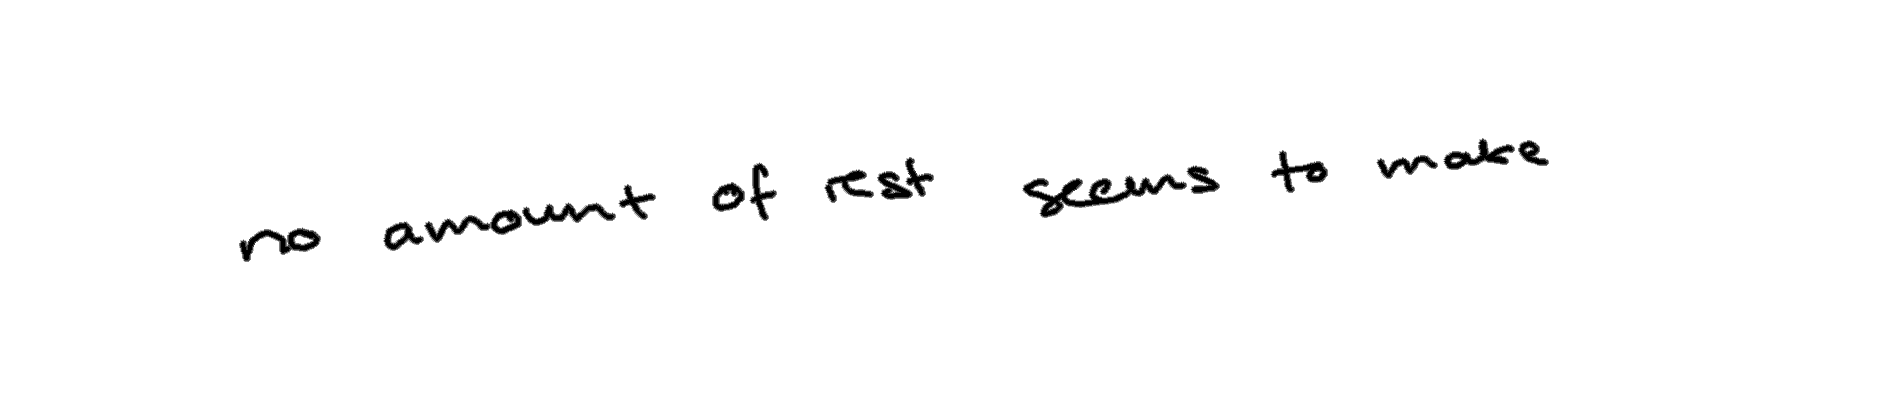 no amount of rest seems to make